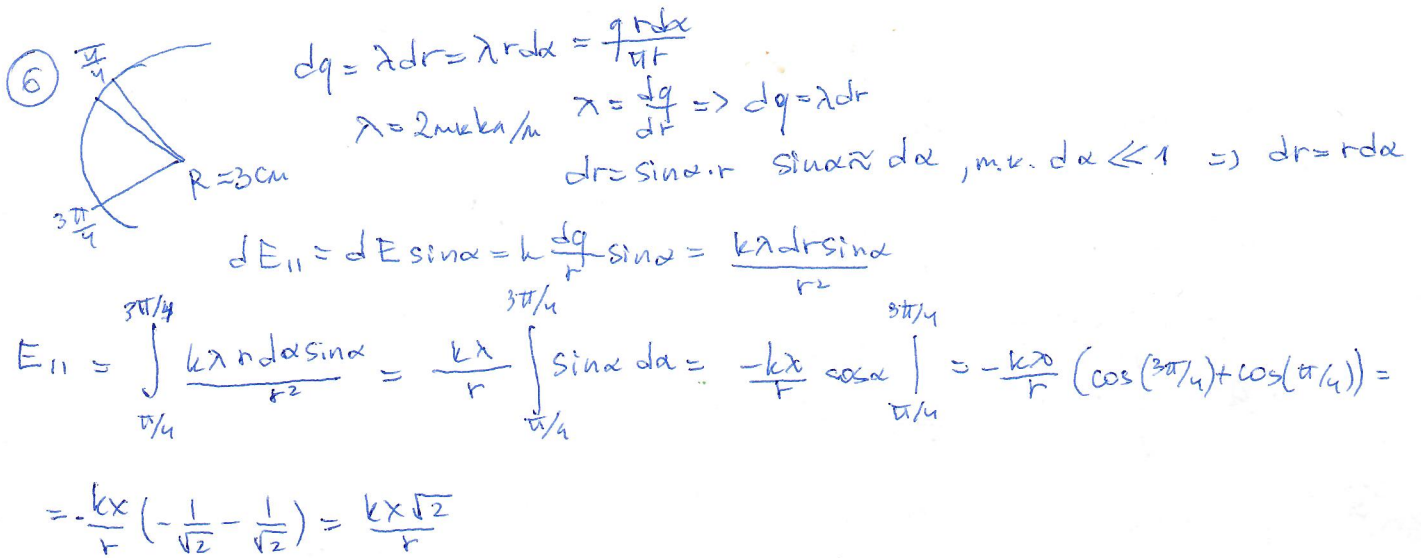 6
π/4
dq = λdr = λrdα = q rdα/πr
λ = 2мккл/м λ = dq/dr => dq = λdr
R = 3 см
dr = sinα·r sinα ≈ dα, т.к. dα ≪ 1 => dr = rdα
3π/4
dE₁₁ = dE sinα = k dq/r sinα = kλdr sinα/r²
E₁₁ = ∫_{π/4}^{3π/4} kλrdα sinα/r² = kλ/r ∫_{π/4}^{3π/4} sinα dα = -kλ/r cosα |_{π/4}^{3π/4} = -kλ/r (cos(3π/4)+cos(π/4)) =
= -kλ/r (-1/√2 - 1/√2) = kλ√2/r